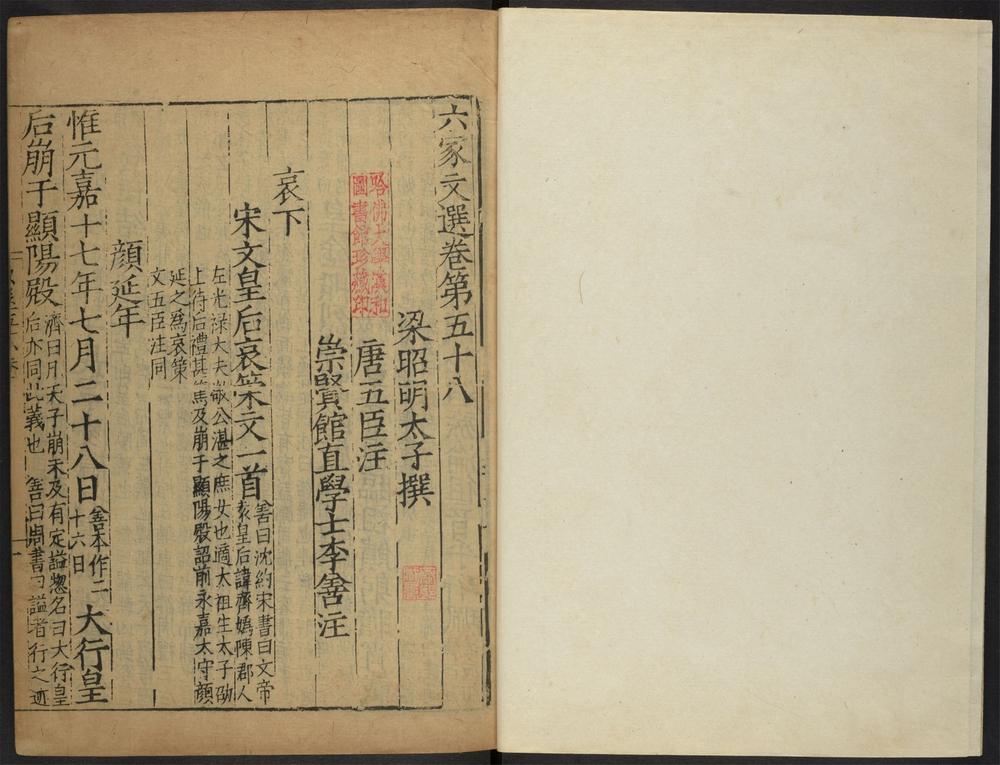 六家文選卷第五十八
梁昭明太子撰
唐五臣注
崇賢館直學士李善注
哈佛大學漢和
圖書館珍藏印
哀下
宋文皇后哀策文一首
善曰沈約宋書曰文帝
袁皇后諱齊媯陳郡人
左光禄大夫敬公湛之庶女也適太祖生太子劭
上待后禮甚篤及崩于顯陽殿詔前永嘉太守顔
延之爲哀策
文五臣注同
顔延年
惟元嘉十七年七月二十八日
善本作二
十六日
大行皇
后崩于顯陽殿
濟曰月天子崩未及有定謚惣名曰大行皇
后亦同此義也 善曰周書曰謚者行之迹